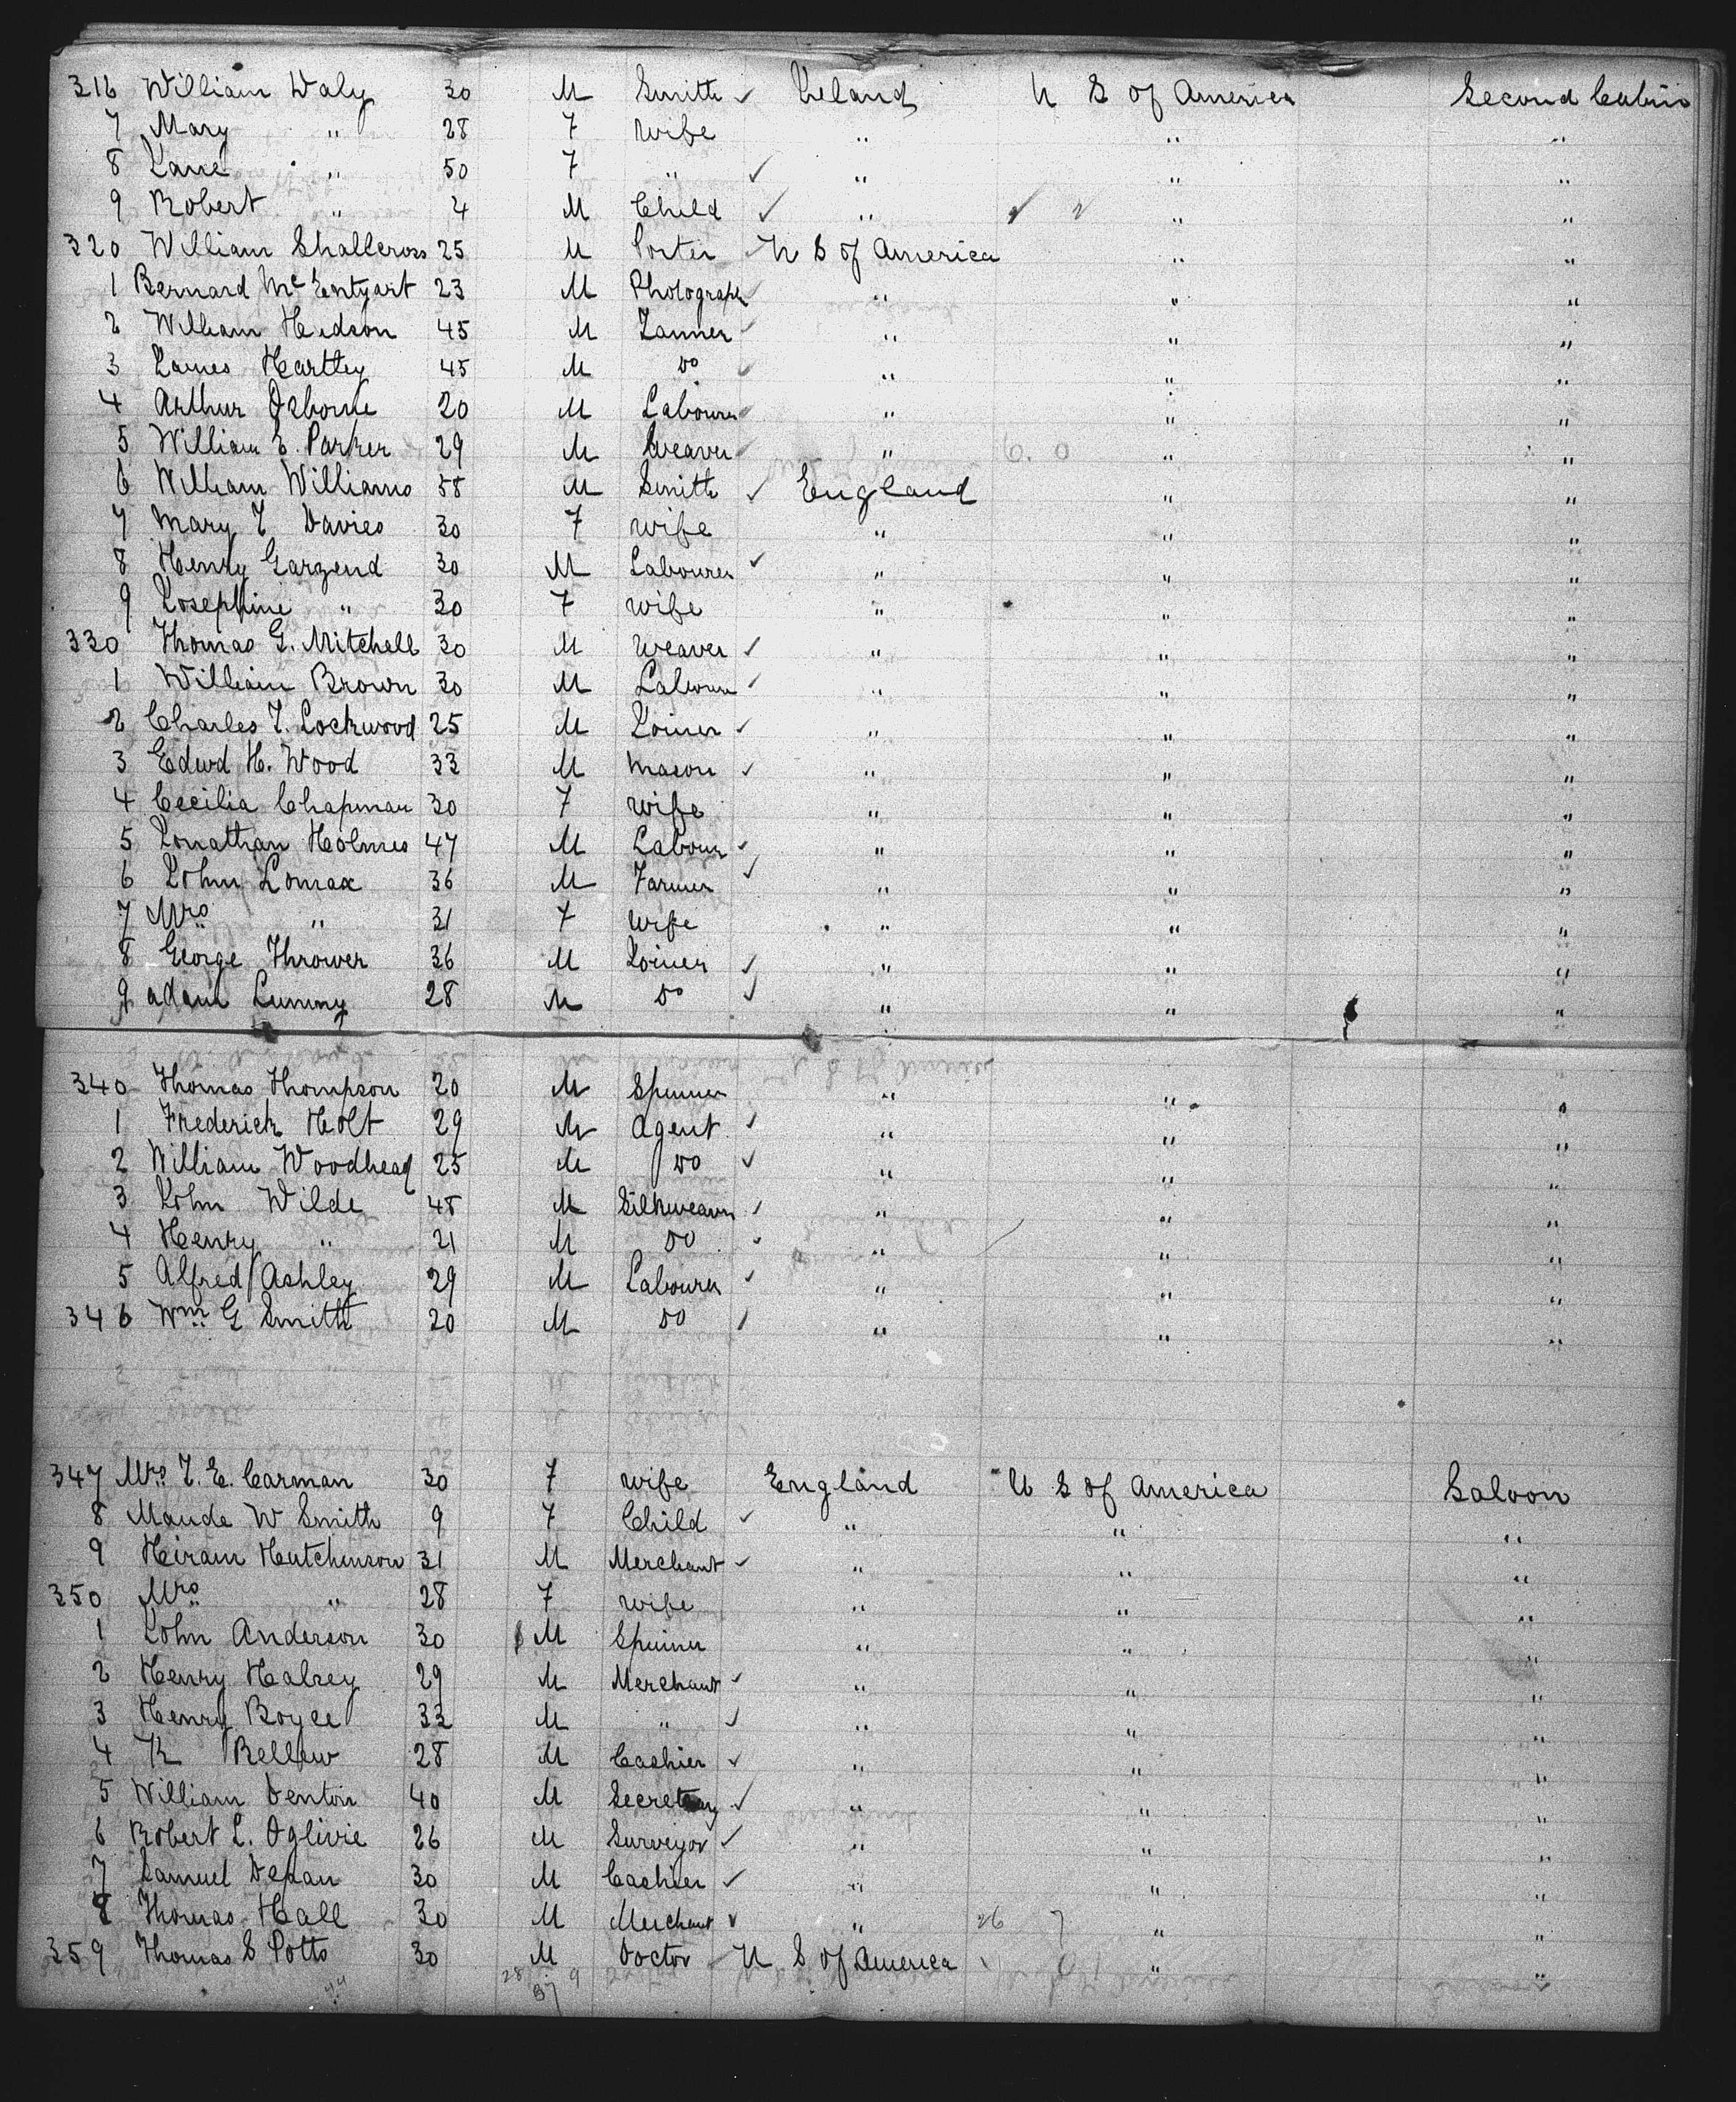 316 William Daly 30 M Smith ✓ Ireland U S of America Second Cabin
7 Mary " 28 F wife " " "
8 Jane " 50 F " ✓ " " "
9 Robert " 4 M Child ✓ " ✓ " "
320 William Shallcross 25 M Porter U S of America " "
1 Bernard McEntyart 23 M Photograph " " "
2 William Hudson 45 M Tanner " " "
3 James Hartley 45 M Do " " "
4 Arthur Osborne 20 M Labourer " " "
5 William E. Parker 29 M Weaver " " "
6 William Williams 58 M Smith ✓ England " "
7 Mary J Davies 30 F wife " " "
8 Henry Garzend 30 M Labourer ✓ " " "
9 Josephine " 30 F wife " " "
330 Thomas G. Mitchell 30 M Weaver ✓ " " "
1 William Brown 30 M Labourer ✓ " " "
2 Charles J. Lockwood 25 M Joiner ✓ " " "
3 Edwd H. Wood 33 M Mason ✓ " " "
4 Cecilia Chapman 30 F wife " " "
5 Jonathan Holmes 47 M Labour ✓ " " "
6 John Lomax 36 M Farmer ✓ " " "
7 Mrs " 31 F wife " " "
8 George Thrower 36 M Joiner ✓ " " "
9 Adam Lummy 28 M Do ✓ " " "
340 Thomas Thompson 20 M Spinner " " "
1 Frederick Holt 29 M Agent ✓ " " "
2 William Woodhead 25 M Do ✓ " " "
3 John Wilde 48 M Silkweaver ✓ " " "
4 Henry " 21 M Do ✓ " " "
5 Alfred Ashley 29 M Labourer ✓ " " "
346 Wm G Smith 20 M Do ✓ " " "
347 Mrs J. E. Carman 30 F wife England U S of America Saloon
8 Maude W Smith 9 F Child ✓ " " "
9 Hiram Hutchinson 31 M Merchant ✓ " " "
350 Mrs " 28 F wife " " "
1 John Anderson 30 M Spinner " " "
2 Henry Halsey 29 M Merchant ✓ " " "
3 Henry Boyce 32 M " ✓ " " "
4 K Bellew 28 M Cashier ✓ " " "
5 William Denton 40 M Secretary ✓ " " "
6 Robert L. Oglivie 26 M Surveyor ✓ " " "
7 Samuel Depan 30 M Cashier ✓ " " "
8 Thomas Hall 30 M Merchant ✓ " 26 7 " "
359 Thomas S Potts 30 M Doctor U S of America " "
28 9
37